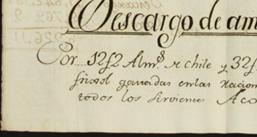 Descargo de am
Por 1252 Alm.s de Chile y 32
frisol gastadas en las racion
todos los sirvientes Aco